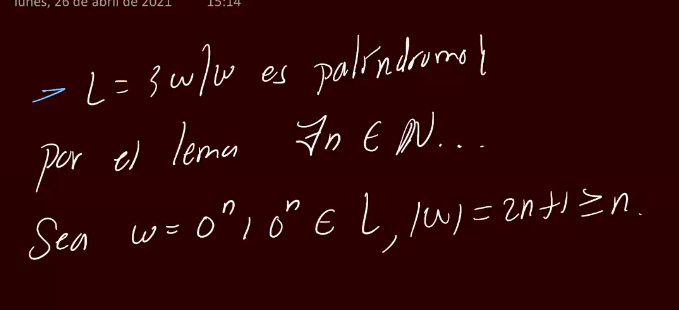 lunes, 26 de abril de 2021 15:14
→ L = {w/w es palíndromo}
por el lema ∃n ∈ ℕ...
Sea w = 0ⁿ10ⁿ ∈ L, |w| = 2n+1 ≥ n.